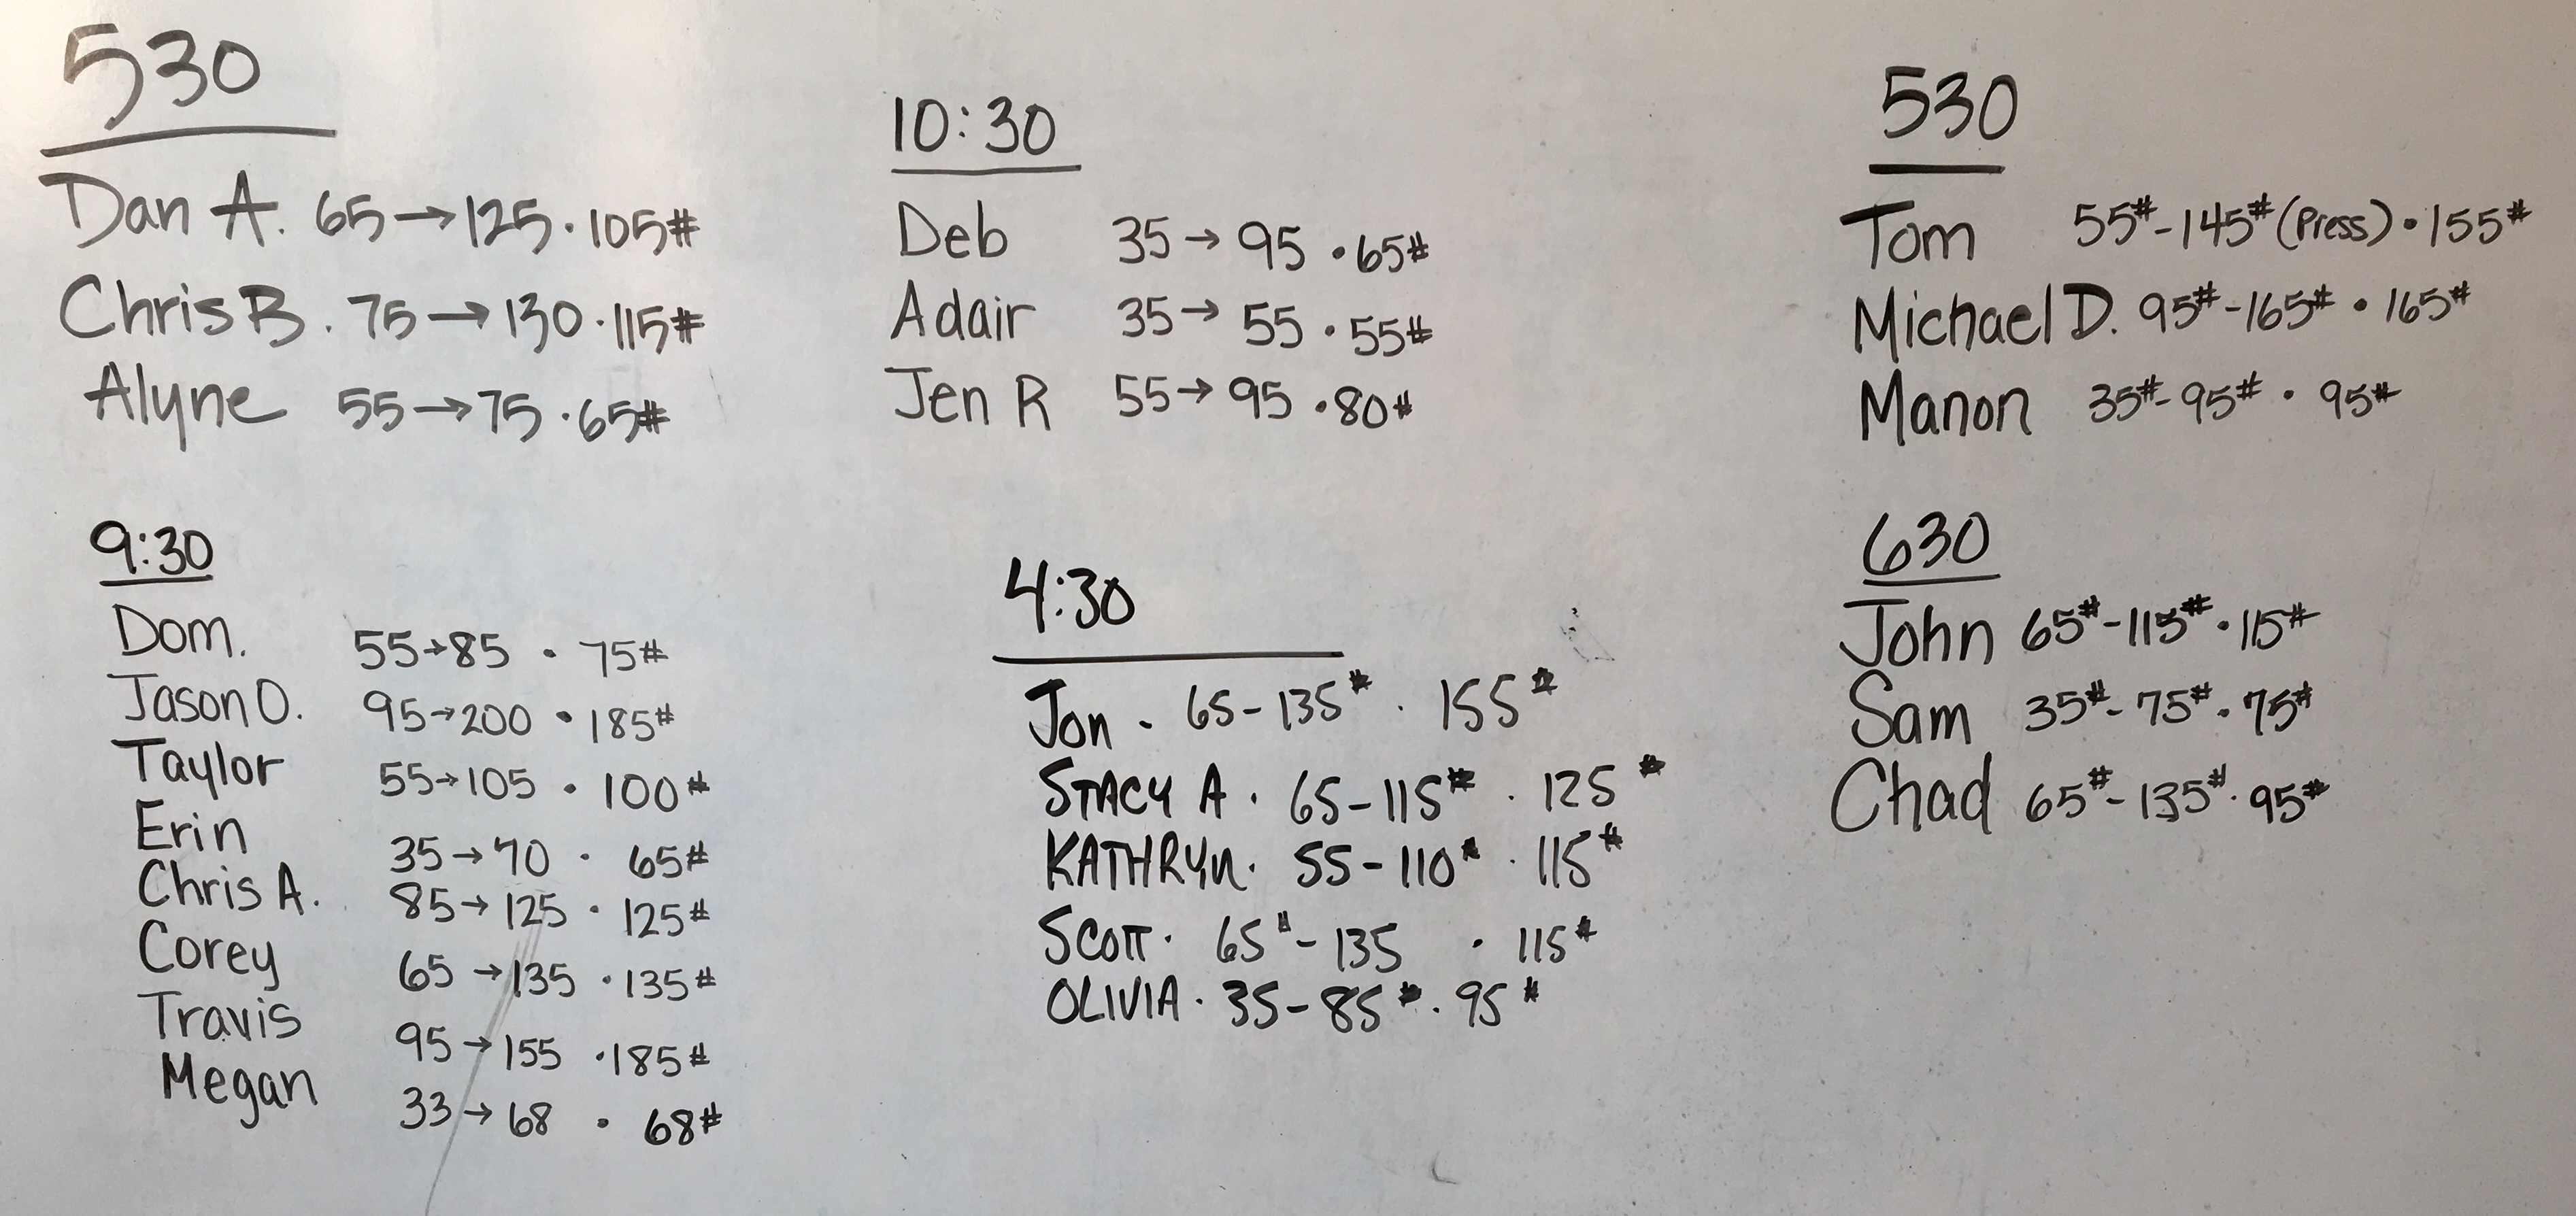 530
Dan A. 65→125 · 105#
Chris B. 75→130 · 115#
Alyne 55→75 · 65#
9:30
Dom. 55→85 · 75#
Jason O. 95→200 · 185#
Taylor 55→105 · 100#
Erin 35→70 · 65#
Chris A. 85→125 · 125#
Corey 65→135 · 135#
Travis 95→155 · 185#
Megan 33→68 · 68#
10:30
Deb 35→95 · 65#
Adair 35→55 · 55#
Jen R 55→95 · 80#
4:30
Jon - 65-135# · 155#
STACY A · 65-115# · 125#
KATHRYn · 55-110# · 115#
SCOTT · 65#-135 · 115#
OLIVIA · 35-85# · 95#
530
Tom 55#-145# (Press) · 155#
Michael D. 95#-165# · 165#
Manon 35#-95# · 95#
630
John 65#-115# · 115#
Sam 35#-75# · 75#
Chad 65#-135# · 95#